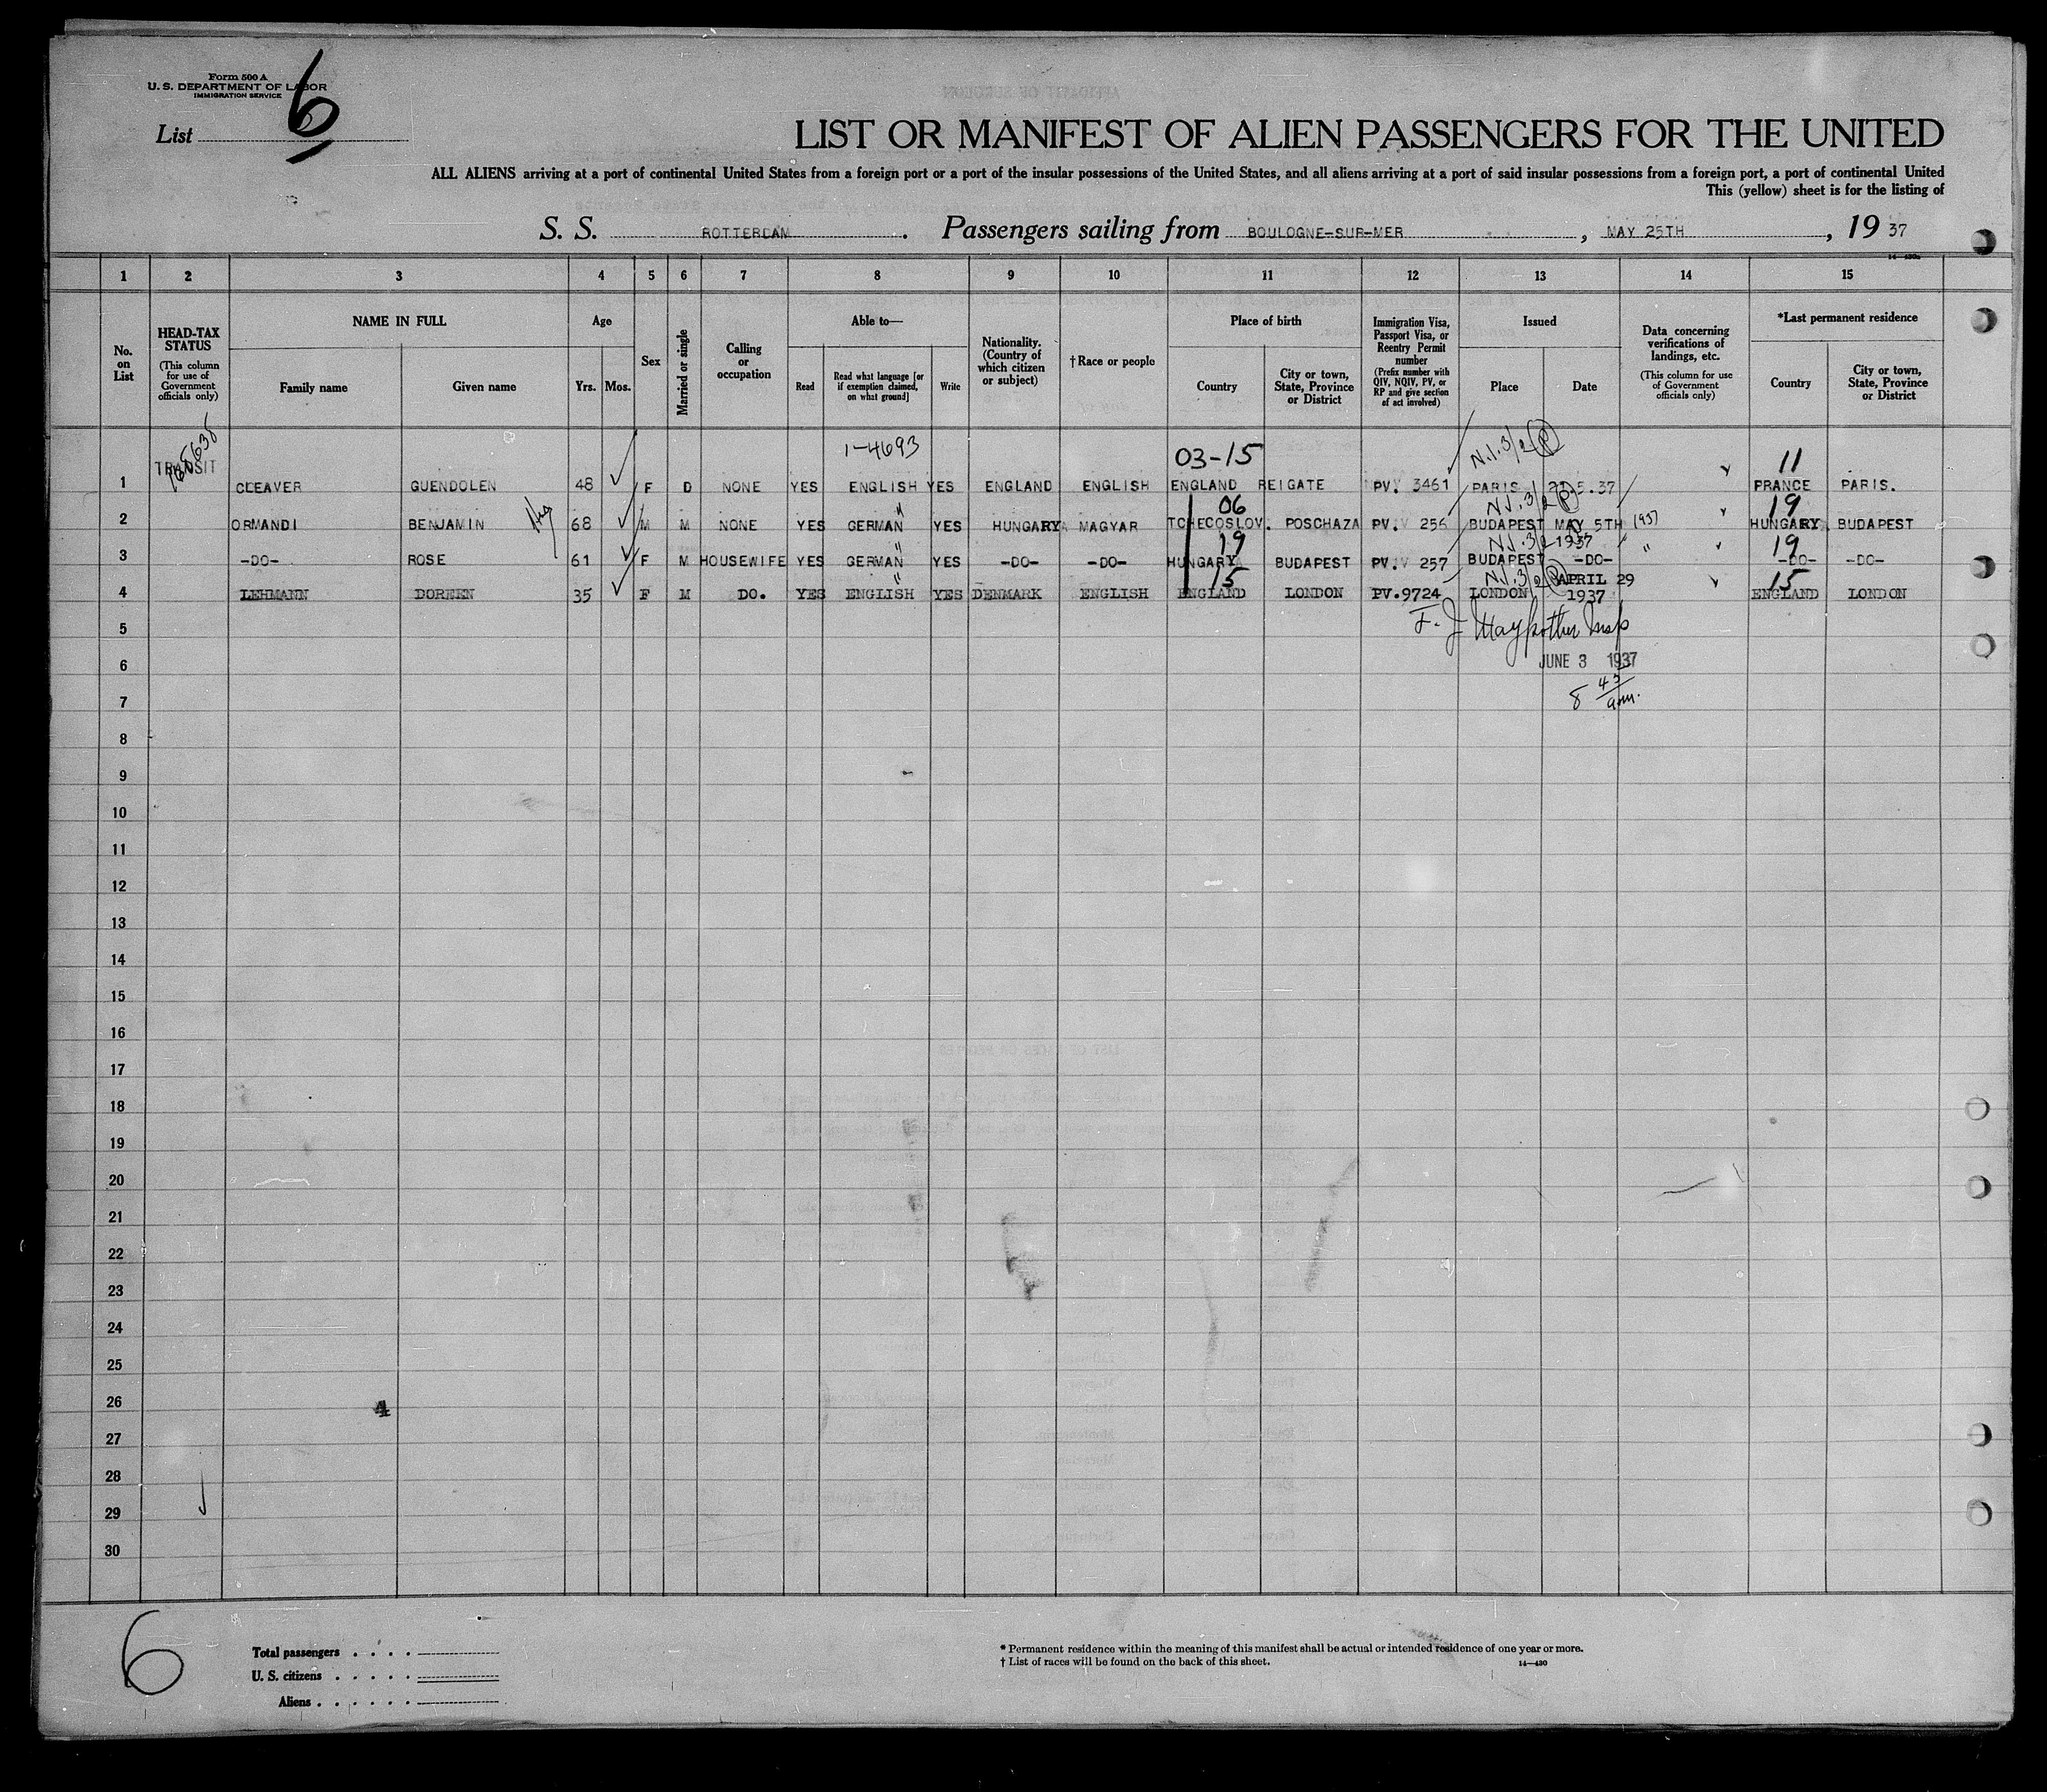 Form 500 A
U. S. DEPARTMENT OF LABOR
IMMIGRATION SERVICE
List 6
LIST OR MANIFEST OF ALIEN PASSENGERS FOR THE UNITED
ALL ALIENS arriving at a port of continental United States from a foreign port or a port of the insular possessions of the United States, and all aliens arriving at a port of said insular possessions from a foreign port, a port of continental United
This (yellow) sheet is for the listing of
S. S. ROTTERDAM. Passengers sailing from BOULOGNE-SUR-MER, MAY 25TH, 19 37
1 2 3 4 5 6 7 8 9 10 11 12 13 14 15
No. on List
HEAD-TAX STATUS (This column for use of Government officials only)
NAME IN FULL Family name Given name
Age Yrs. Mos.
Sex
Married or single
Calling or occupation
Able to— Read Read what language [or if exemption claimed, on what ground] Write
Nationality. (Country of which citizen or subject)
† Race or people
Place of birth Country City or town, State, Province or District
Immigration Visa, Passport Visa, or Reentry Permit number (Prefix number with QIV, NQIV, PV, or RP and give section of act involved)
Issued Place Date
Data concerning verifications of landings, etc. (This column for use of Government officials only)
*Last permanent residence Country City or town, State, Province or District
1-4693 03-15 N.I. 3/2 P 11
TRANSIT
1 CLEAVER GUENDOLEN 48 F D NONE YES ENGLISH YES ENGLAND ENGLISH ENGLAND REIGATE PV. 3461 PARIS 5.37 FRANCE PARIS.
06 N.I. 3/2 P 19
2 ORMANDI BENJAMIN 68 M M NONE YES GERMAN YES HUNGARY MAGYAR TCHECOSLOV. POSCHAZA PV. 256 BUDAPEST MAY 5TH 1937 HUNGARY. BUDAPEST
19 N.I. 3/2 1937 19
3 -DO- ROSE 61 F M HOUSEWIFE YES GERMAN YES -DO- -DO- HUNGARY BUDAPEST PV. 257 BUDAPEST -DO- " -DO- -DO-
15 N.I. 3/2 P APRIL 29 15
4 LEHMANN DOREEN 35 F M DO. YES ENGLISH YES DENMARK ENGLISH ENGLAND LONDON PV.9724 LONDON 1937 ENGLAND LONDON
5 F. J. Maypother Insp
6 JUNE 3 1937
7 8 43 am.
8
9
10
11
12
13
14
15
16
17
18
19
20
21
22
23
24
25
26
4
27
28
29
30
6
Total passengers . . . .
U. S. citizens . . . . .
Aliens . . . . . .
* Permanent residence within the meaning of this manifest shall be actual or intended residence of one year or more.
† List of races will be found on the back of this sheet.
14—430